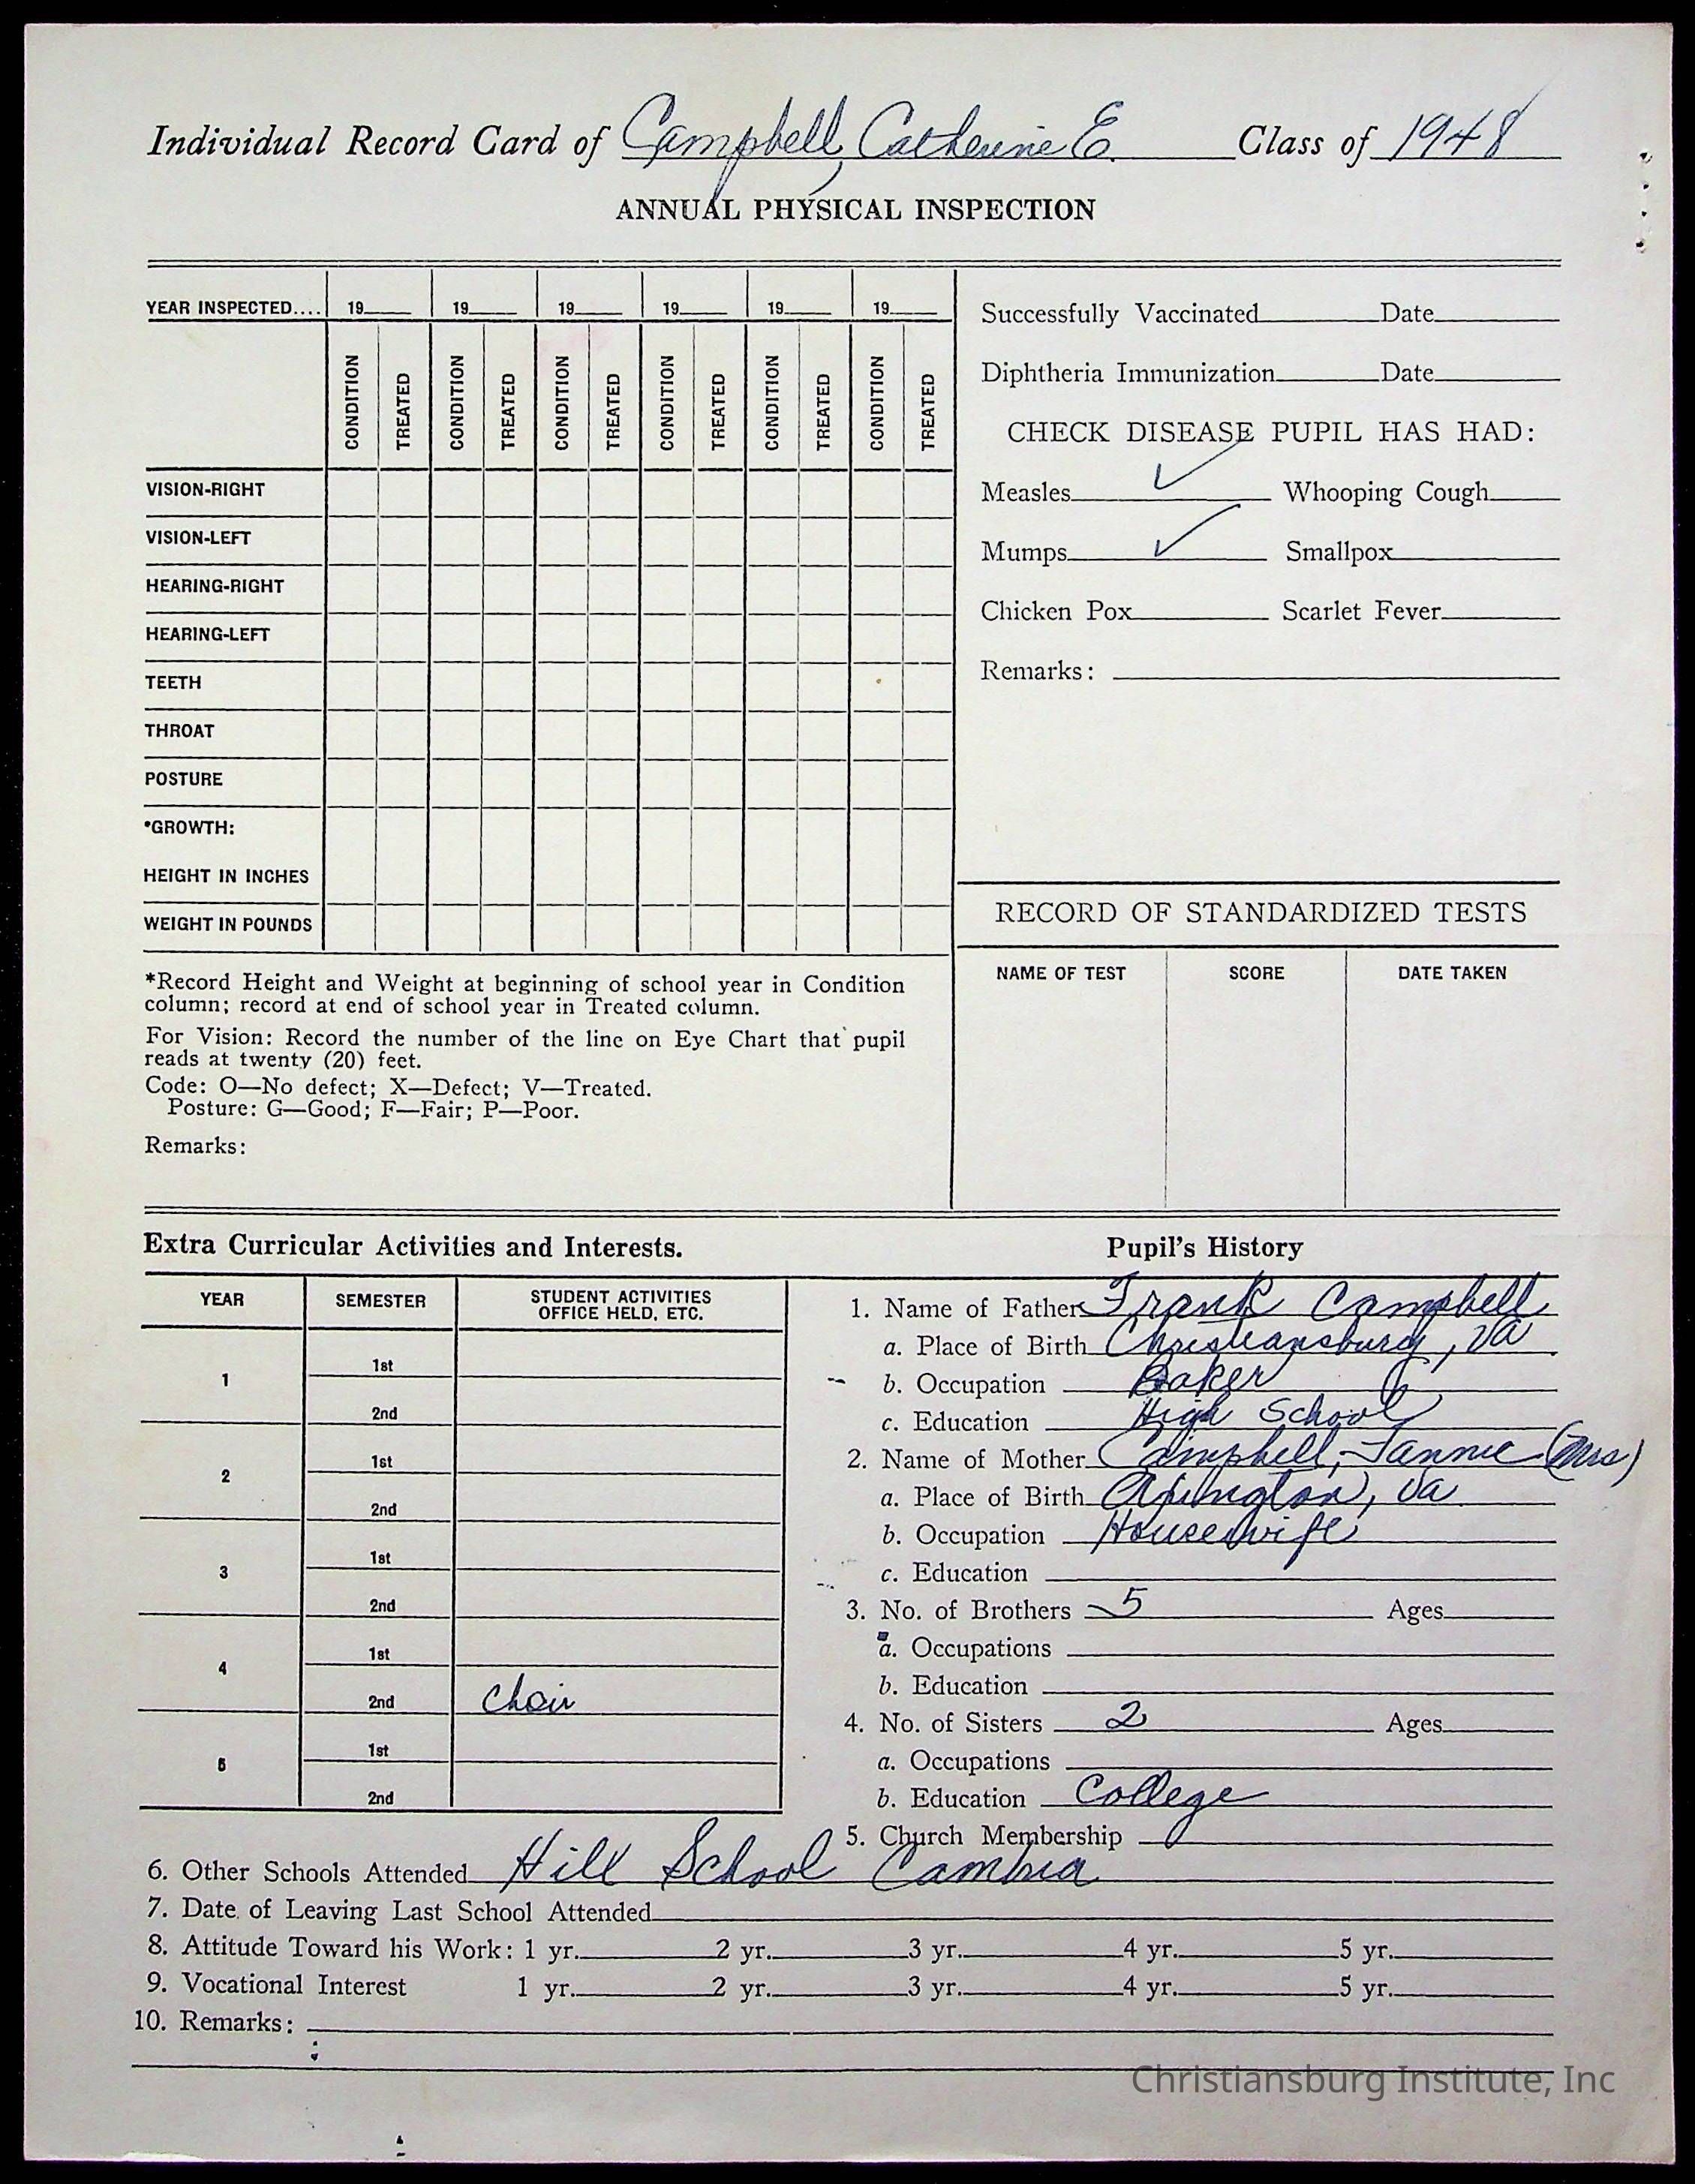 Individual Record Card of Campbell, Catherine E. Class of 1948
ANNUAL PHYSICAL INSPECTION
YEAR INSPECTED.... 19 19 19 19 19 19
CONDITION TREATED CONDITION TREATED CONDITION TREATED CONDITION TREATED CONDITION TREATED CONDITION TREATED
VISION-RIGHT
VISION-LEFT
HEARING-RIGHT
HEARING-LEFT
TEETH
THROAT
POSTURE
*GROWTH:
HEIGHT IN INCHES
WEIGHT IN POUNDS
*Record Height and Weight at beginning of school year in Condition
column; record at end of school year in Treated column.
For Vision: Record the number of the line on Eye Chart that pupil
reads at twenty (20) feet.
Code: O—No defect; X—Defect; V—Treated.
Posture: G—Good; F—Fair; P—Poor.
Remarks:
Successfully Vaccinated Date
Diphtheria Immunization Date
CHECK DISEASE PUPIL HAS HAD:
Measles ✓ Whooping Cough
Mumps ✓ Smallpox
Chicken Pox Scarlet Fever
Remarks:
RECORD OF STANDARDIZED TESTS
NAME OF TEST SCORE DATE TAKEN
Extra Curricular Activities and Interests.
YEAR SEMESTER STUDENT ACTIVITIES
OFFICE HELD, ETC.
1 1st
2nd
2 1st
2nd
3 1st
2nd
4 1st
2nd Choir
5 1st
2nd
Pupil's History
1. Name of Father Frank Campbell
a. Place of Birth Christiansburg, Va
b. Occupation Baker
c. Education High School
2. Name of Mother Campbell, Fannie (Mrs)
a. Place of Birth Va
b. Occupation Housewife
c. Education
3. No. of Brothers 5 Ages
a. Occupations
b. Education
4. No. of Sisters 2 Ages
a. Occupations
b. Education College
5. Church Membership
6. Other Schools Attended Hill School Cambria
7. Date of Leaving Last School Attended
8. Attitude Toward his Work: 1 yr. 2 yr. 3 yr. 4 yr. 5 yr.
9. Vocational Interest 1 yr. 2 yr. 3 yr. 4 yr. 5 yr.
10. Remarks:
Christiansburg Institute, Inc